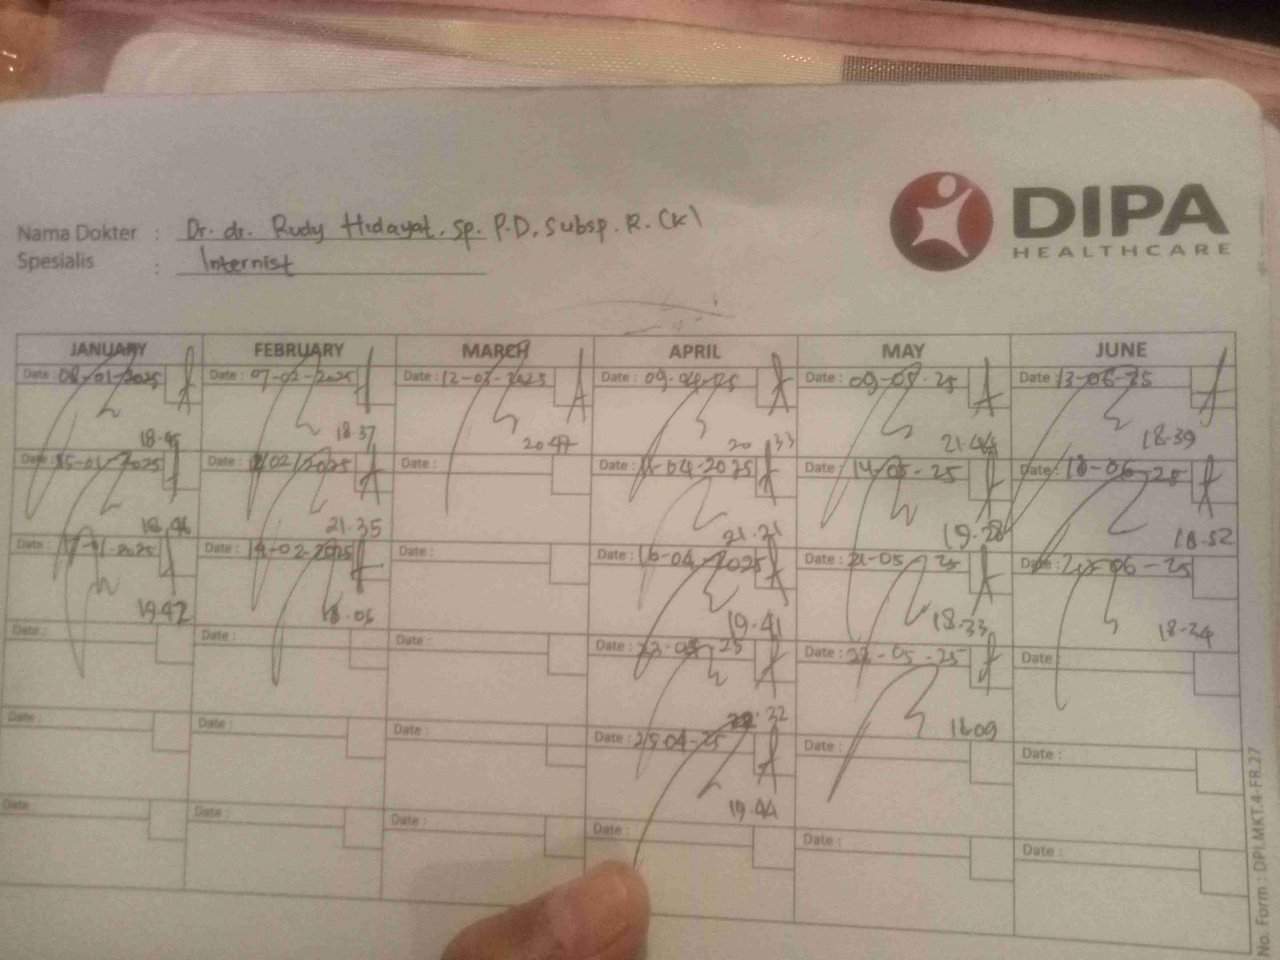 DIPA
HEALTHCARE
Nama Dokter : Dr. dr. Rudy Hidayat, Sp. P.D, Subsp. R. (K)
Spesialis : Internist
JANUARY FEBRUARY MARCH APRIL MAY JUNE
Date : 08-01-2025 Date : 07-02-2025 Date : 12-03-2025 Date : 09-04-25 Date : 09-05-25 Date 13-06-25
18.45 18.37 20.47 20 33 21.44 18-39
Date : 15-01-2025 Date : /02/2025 Date : Date : -04-2025 Date : 14-05-25 Date : 18-06-25
18.46 21.35 21.21 19.28 18.52
Date : -2025 Date : 19-02-2025 Date : Date : 16-04-2025 Date : 21-05-25 Date : -06-25
19.47 18.05 19.41 18.33 18-34
Date : Date : Date : Date : -25 Date : -05-25 Date :
32 16.09
Date : Date : Date : Date : 25-04-25 Date : Date :
19.44
Date Date : Date : Date : Date : Date :
No. Form : DPI.MKT.4-FR.27